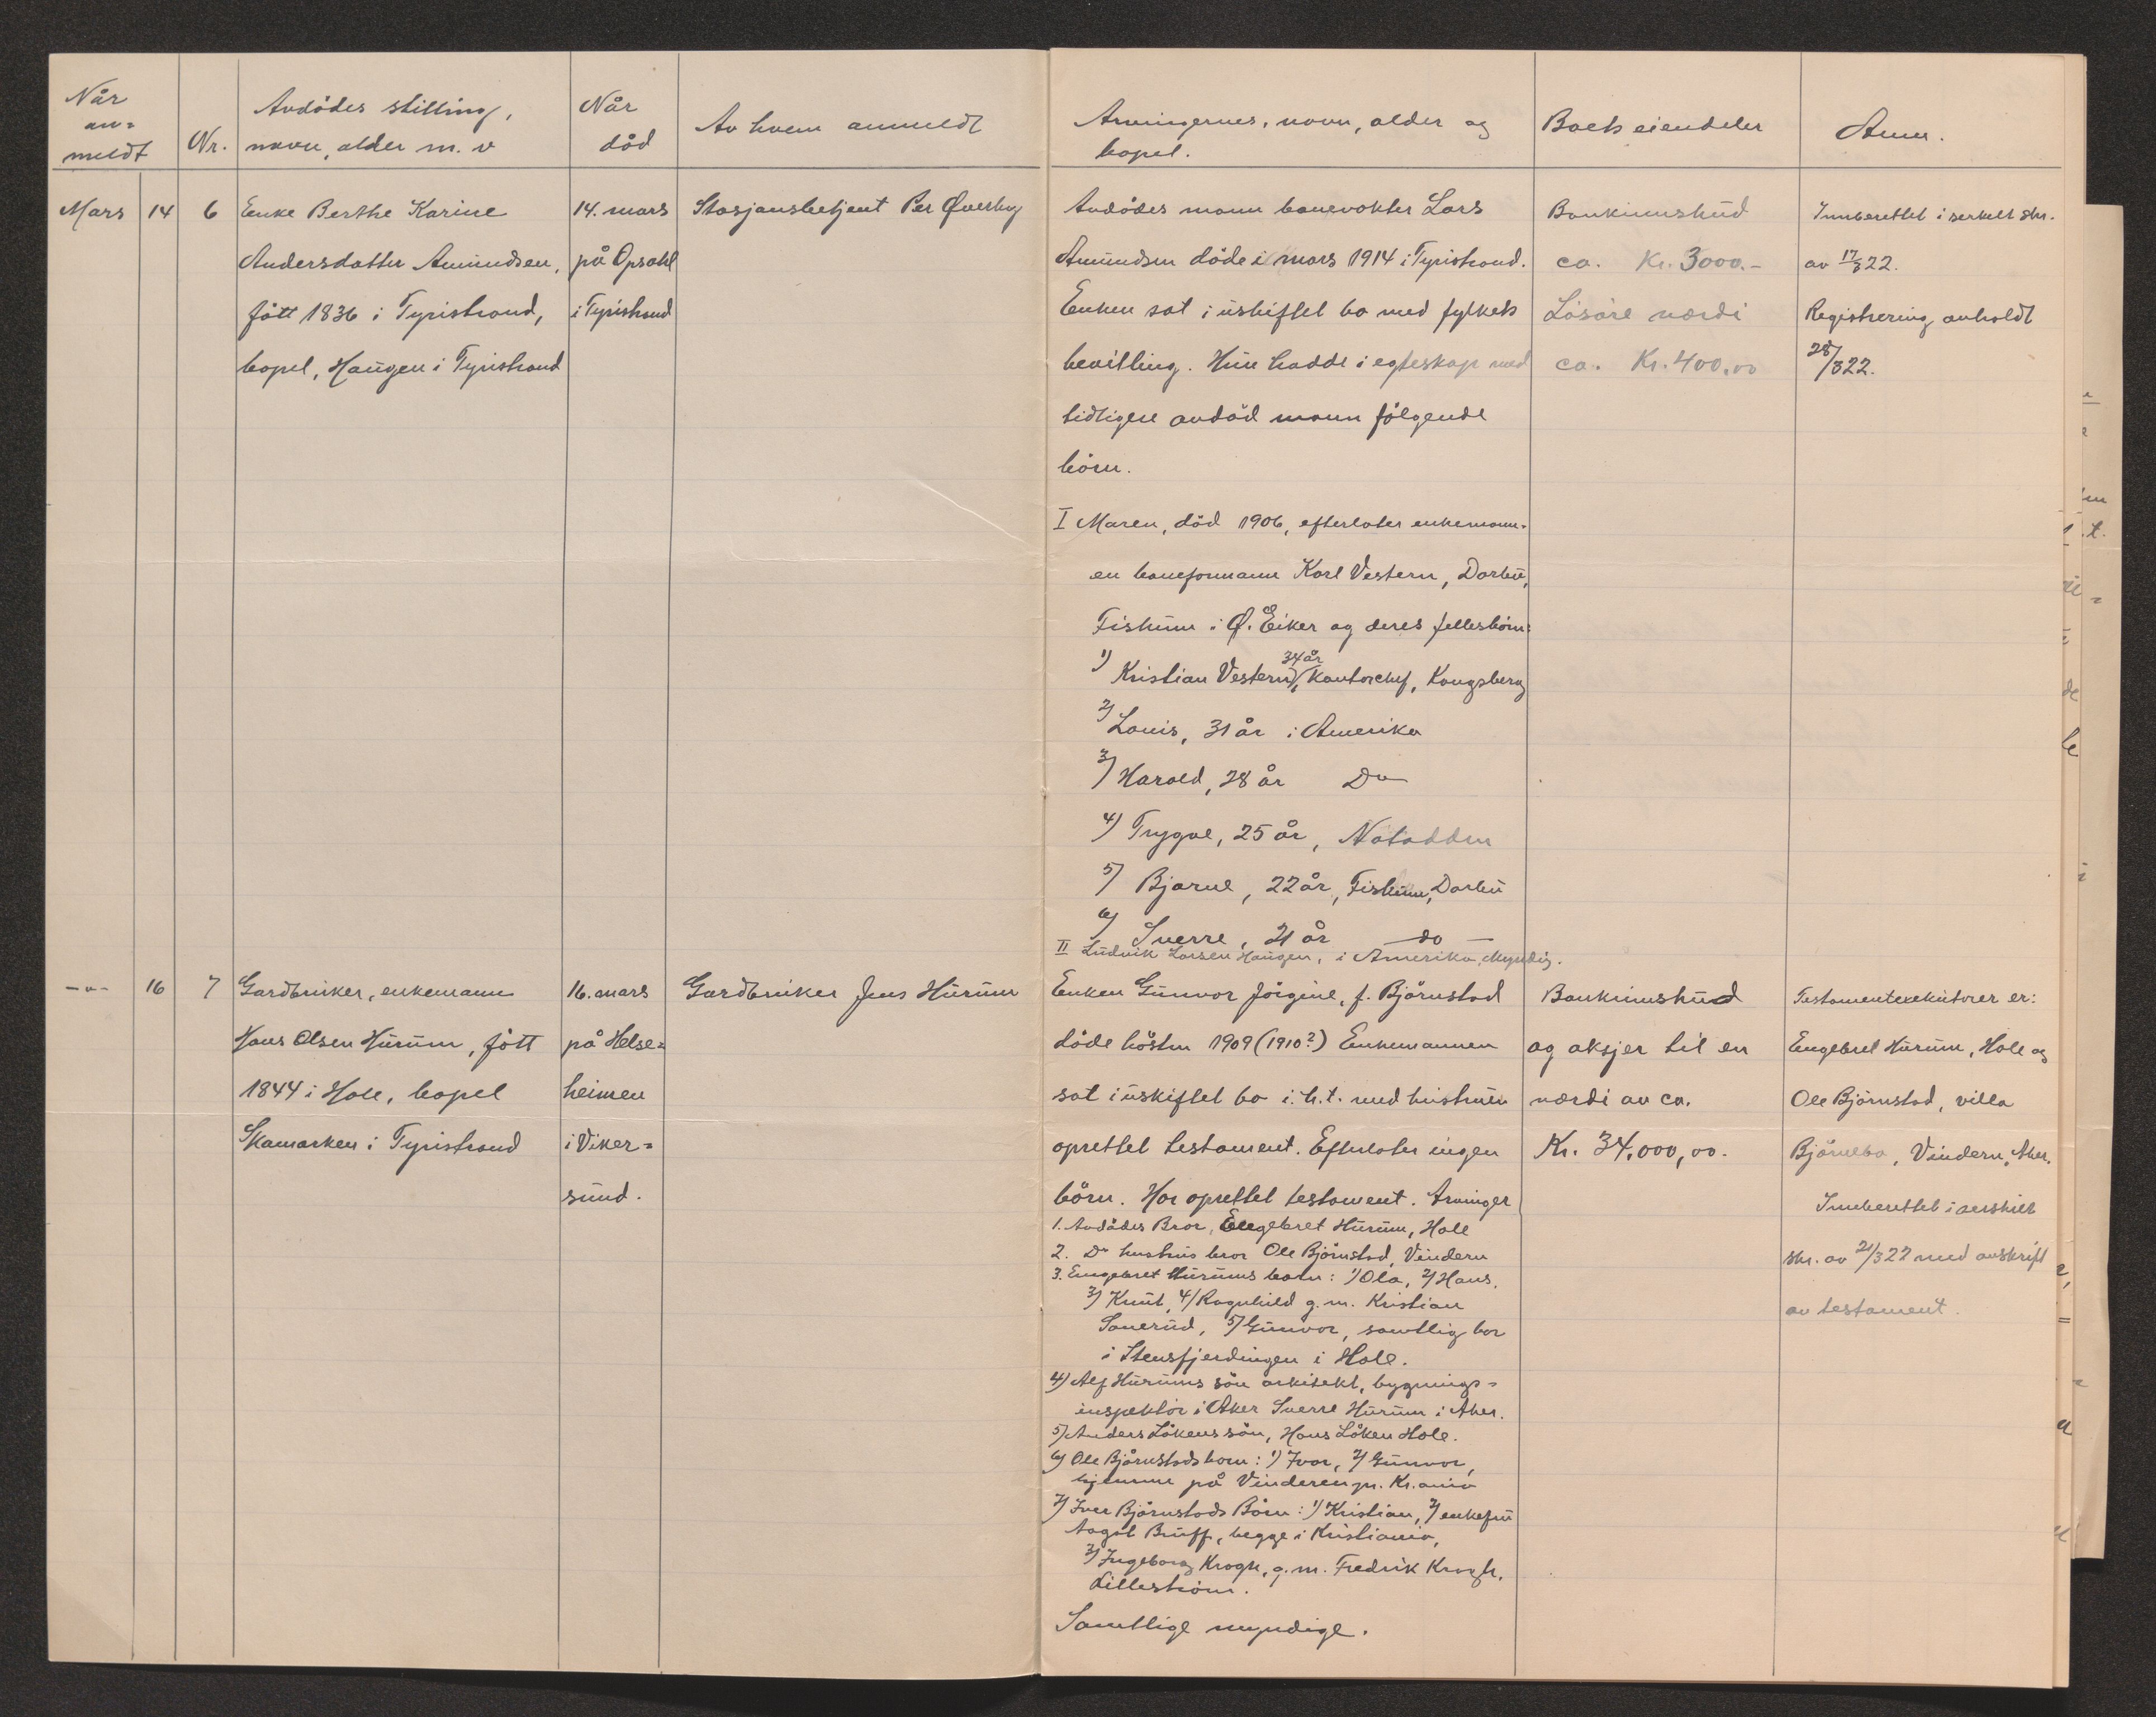 Når
an=
meldt
Nr.
Avdødes stilling,
navn, alder m. v
Når
død
Av hvem anmeldt
Arvingernes, navn, alder og
bopel.
Boets eiendeler
Anm.
Mars 14 6
Enke Berthe Karine
Andersdatter Amundsen,
født 1836 i Tyristrand,
bopel, Haugen i Tyristrand
14. mars
på Opsahl
i Tyristrand
Stasjonsbetjent Per Øverby
Avdødes mann banevokter Lars
Amundsen døde i mars 1914 i Tyristrand.
Enken sat i uskiftet bo med fylkets
bevilling. Hun hadde i egteskap med
tidligere avdød mann følgende
børn.
I Maren, død 1906, efterlater enkemann-
en baneformann Karl Vestern, Darbu,
Fiskum i Ø. Eiker og deres fellesbørn:
1) Kristian Vestern, 34 år, kontorchef, Kongsberg
2) Louis, 31 år i Amerika
3) Harald, 28 år Do
4) Trygve, 25 år, Notodden
5) Bjarne, 22 år, Fiskum, Darbu
6) Sverre, 21 år — do —
II Ludvik Larsen Haugen, i Amerika, Myndig.
Bankinnskud
ca. Kr. 3000.-
Løsøre verdi
ca. Kr. 400,00
Innberettet i serkelt skr.
av 17/3 22.
Registrering anholdt
28/3 22.
-"- 16 7
Gardbruker, enkemann
Hans Olsen Hurum, født
1844 i Hole, bopel
Skamarken i Tyristrand
16. mars
på Helse=
heimen
i Viker=
sund.
Gardbruker Jens Hurum
Enken Gunvor Jørgine, f. Bjørnstad
døde høsten 1909 (1910?) Enkemannen
sat i uskiftet bo i. h. t. med hustruen
oprettet testament. Efterlater ingen
børn. Har oprettet testament. Arvinger
1. Avdødes Bror, Engebret Hurum, Hole
2. Do hustrus bror Ole Bjørnstad, Vindern
3. Engebret Hurums barn: 1) Ola, 2) Hans,
3) Knut, 4) Ragnhild g. m. Kristian
Sønerud, 5) Gunvor, samtlig bor
i Stensfjerdingen i Hole.
4) Alf Hurums søn arkitekt, bygnings=
inspektør i Aker Sverre Hurum i Aker.
5) Anders Løkens søn, Hans Løken Hole.
6) Ole Bjørnstads born: 1) Ivar, 2) Gunvor,
hjemme på Vinderen pr. Kr.ania
7) Iver Bjørnstads Børn: 1) Kristian, 2) enkefru
Aagot Bruff, begge i Kristiania,
3) Ingeborg Krogh, g. m. Fredrik Krogh,
Lillestrøm.
Samtlige myndige.
Bankinnskud
og aksjer til en
verdi av ca.
Kr. 34.000,00.
Testamentexekutorer er:
Engebret Hurum, Hole og
Ole Bjørnstad, villa
Bjørnebo, Vindern, Aker.
Innberettet i serskilt
skr. av 21/3 22 med avskrift
av testament.